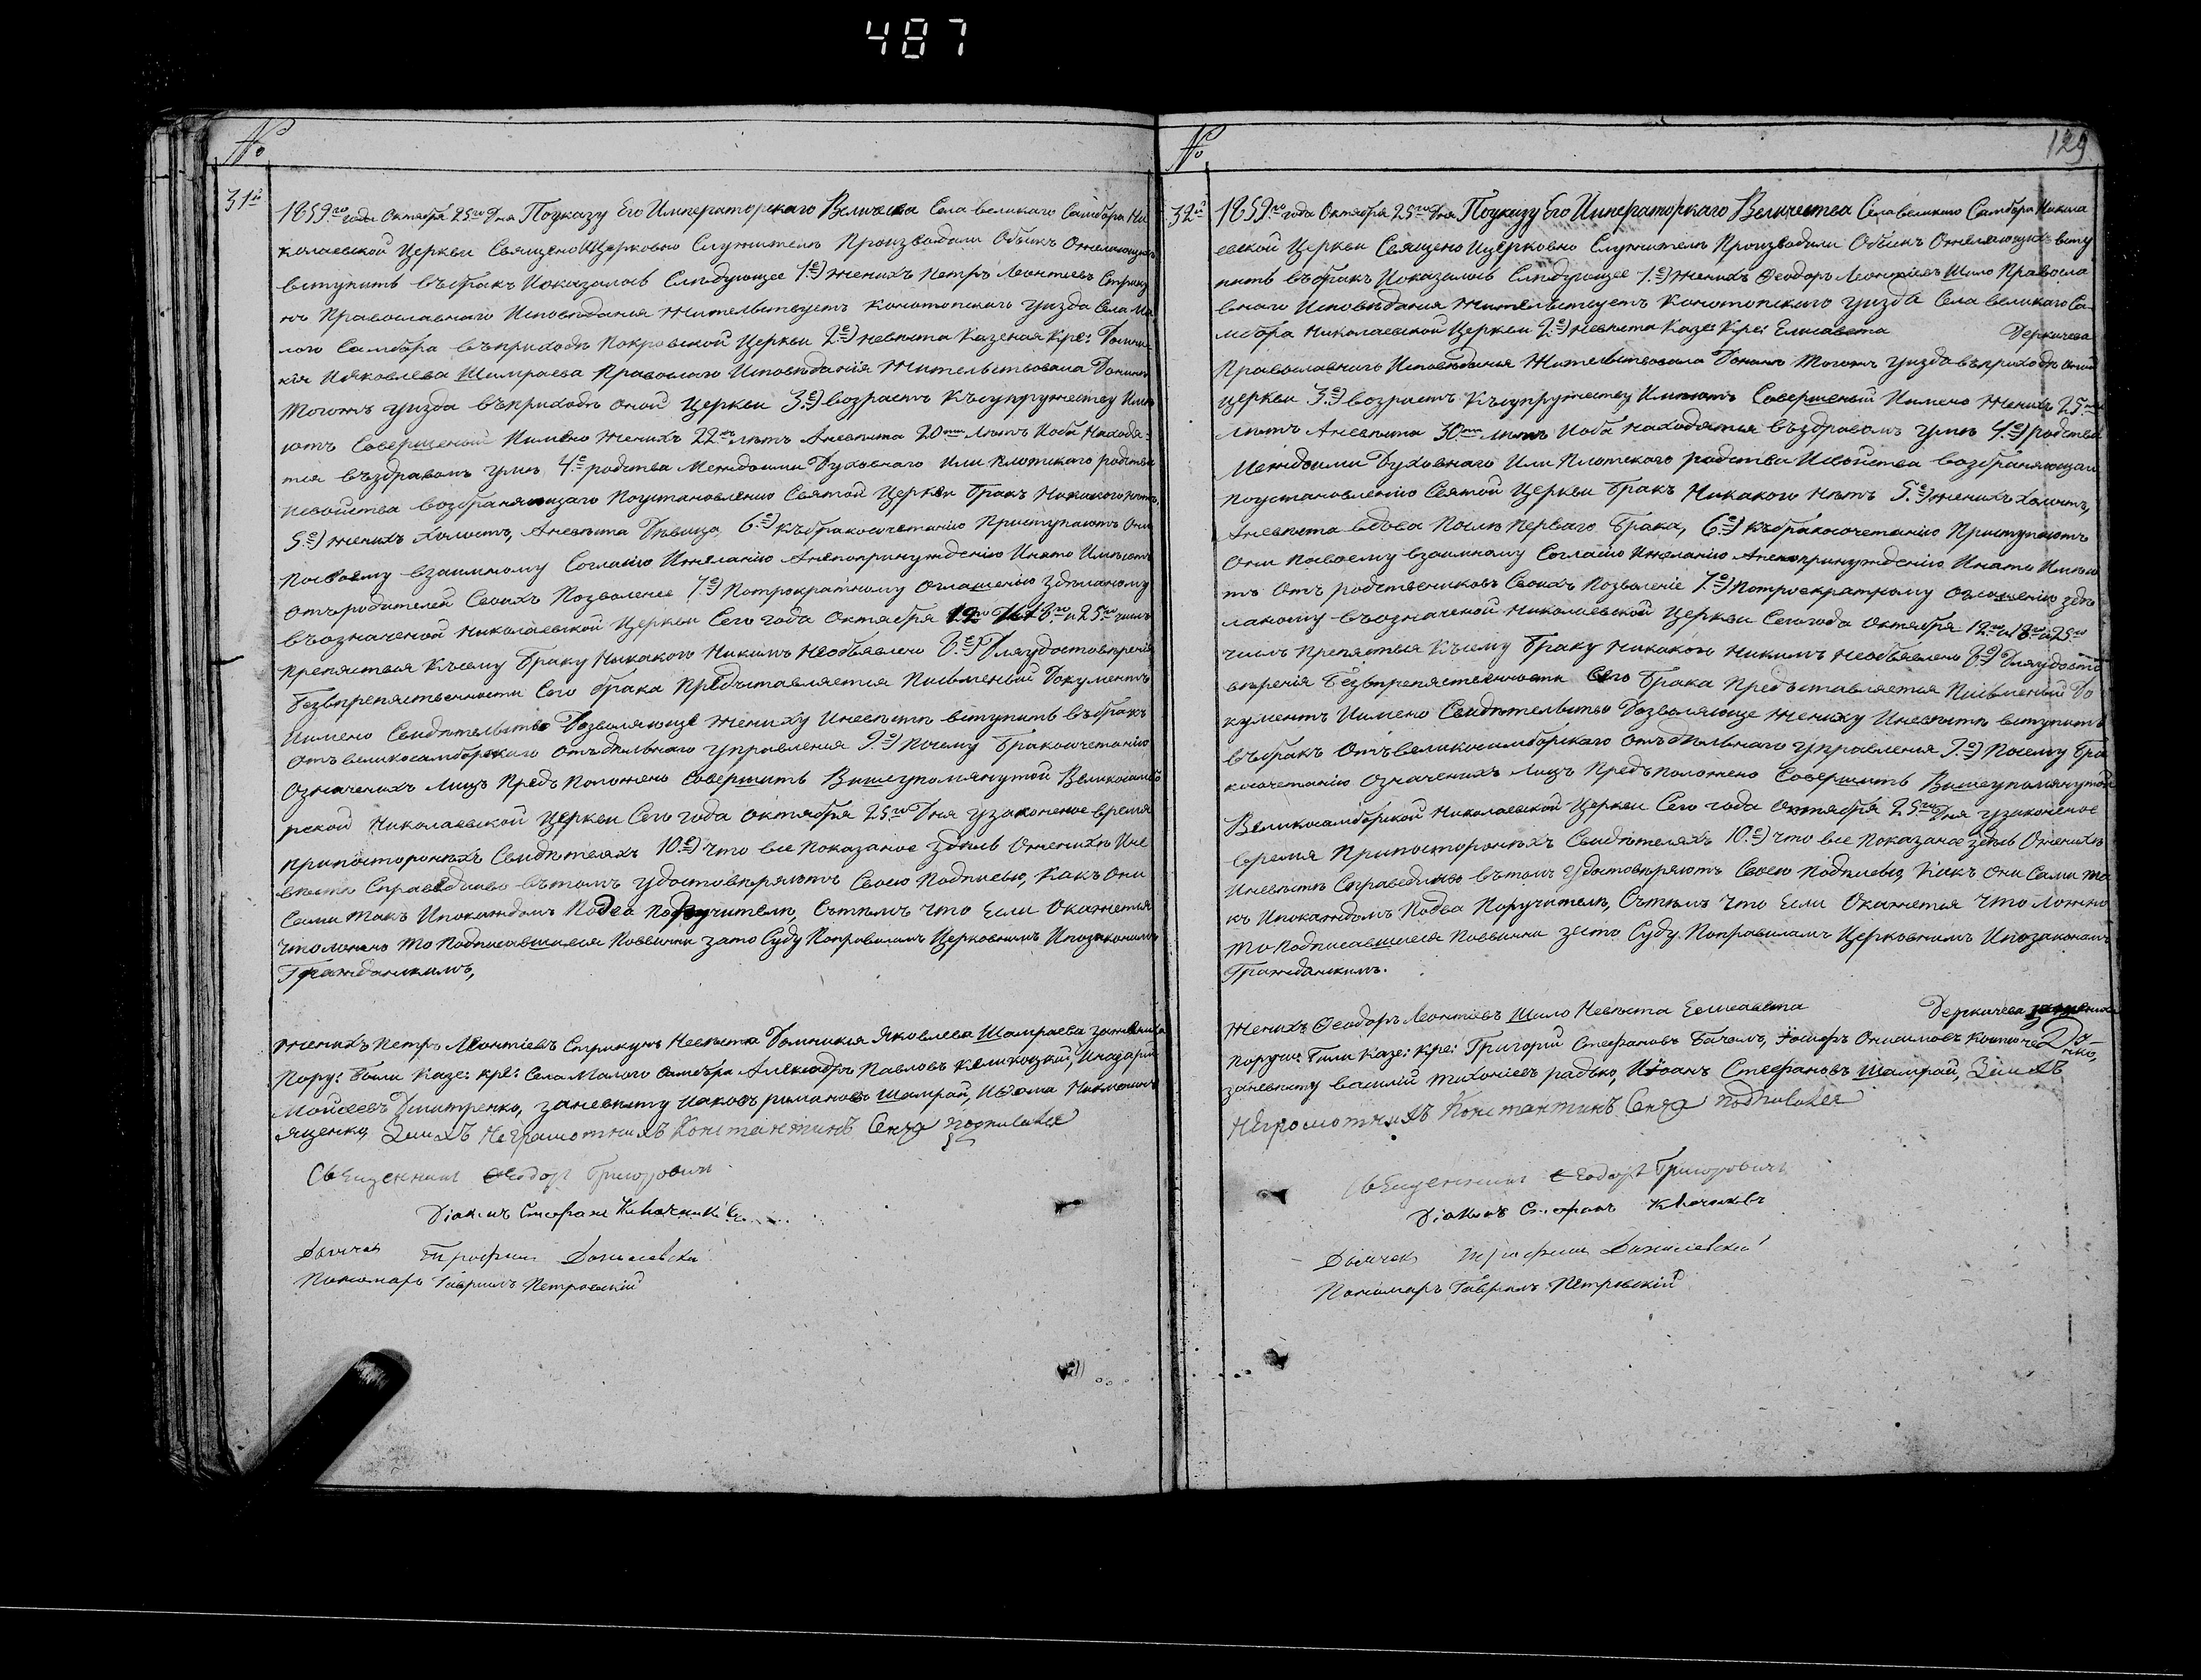 487
№
31й
1859го года Октября 25го дня Поуказу Его Императорскаго Величества Села великаго Самбора Ни
колаевской Церкви Священо Ицерковно Служителе Производили Обыск Ожелающихъ
вступить въбракъ Иоказалось Следующее 1е) женихъ Петръ Леонтиевъ Стрику
нъ Православнаго Исповѣдания жительствуетъ Конотопскаго уизда Села Ма
лого Самбора въприходѣ Покровской Церкви 2е) невѣста Казеная Кре: Домни
кія Ияковлева Шамраева Православнаго Исповѣданія Жительствовала Донынѣ
Тогожъ уизда въприходѣ оной Церкви 3е) возрастъ Късупружеству Имѣ
ютъ Совершеный Иимено женихъ 22хъ лѣтъ Аневѣста 20ти лѣтъ Иоба Находя-
тся въздравомъ умѣ 4е родства Междоими Духовнаго Или Плотскаго родства
Исвойства возбраняющаго Поустановлению Святой Церкви бракъ Никакого нѣтъ,
5е) женихъ Холостъ, Аневѣста Дѣвица, 6е) Къбракосочетанію Приступаютъ Они
Посвоему взаимному Согласію Ижеланію Анепопринуждению Инато Имѣютъ
Отъродителей Своихъ Позволение 7е) Потрократному Оглашению Здѣланому
въозначеной Николаевской Церкви Сего года Октября 18го и 25го числъ
Препяствия Късему браку Никакого Никимъ Необъявлено 8е) Дляудостовѣренія
Безвпрепяственности Сего брака Предъставляется Писменый Документъ
Иимено Свидѣтельство Дозволяюще жениху Иневѣсте вступить въбракъ
Отъ великосамборскаго Отъдѣльнаго Управления 9е) Посему Бракосочетанію
Означенихъ Лицъ Предъ Положено Совершить Вишеупомянутой Великосамбо
рской Николаевской Церкви Сего года Октября 25го Дня узаконеное время
припосторонехъ Свидѣтеляхъ 10е) что все Показаное Здѣсь Оженихѣ Ине
вѣсте Справедливо вътомъ удостовѣряютъ Своею Подписью, Какъ Они
Сами Такъ Ипокаждомъ Подва Поручители, Сътѣмъ что Если Окажется
Чтоложно то Подписавшиеся Повинни зато Суду Поправиламъ Церковнимъ Ипозаконамъ
Гражданскимъ,
женихъ Петръ Леонтіевъ Стрикунъ Невѣста Домникия Яковлева Шамраева зажениха
Пору: били Казе: кре: Села Малого Самбора Александръ Павловъ Великоцкий, Иназарий
Моисеевъ Дмитренко, заневѣсту Иаковъ романовъ Шамрай, Ифома Никитинъ
Яценко, Занихъ Неграмотнихъ Константинъ Сенча подписался
Священникъ Ѳеодоръ Григоровичъ
Діаконъ Стефанъ Ключниковъ
Дьячекъ Трофимъ Данилевский
Пономаръ Гавриилъ Петровский
№
129
32й
1859го года Октября 25го дня Поуказу Его Императоркаго Величества Села великаго Самбора Никола
евской Церкви Священо Ицерковно Служителе Производили Обыскъ Ожелающихъ всту
пить въбракъ Иоказалось Слѣдующее 1е) женихъ Ѳеодоръ Леонтіевъ Шило Правосла
внаго Исповѣдания Жительствуетъ Конотопскаго уизда Села великаго Са-
мбора Николаевской Церкви 2е) невѣста Казе: Кре: Елисавета Деркачева
Православнаго Исповѣдания Жительствовала Донынѣ Тогожъ уизда въприходѣ оной
церкви 3е) возрастъ Късупружеству Имѣютъ Совершеный Иимено женихъ 25ти
лѣтъ Аневѣста 30ти лѣтъ Иоба Находятся въздравомъ умѣ 4е) родства
Междоими Духовнаго Или Плотскаго родства Исвойства возбраняющаго
Поустановлению Святой Церкви бракъ Никакого Нѣтъ 5е) женихъ Холостъ,
Аневѣста вдова Послѣ Перваго брака, 6е) Къбракосочетанію Приступаютъ
Они Посвоему взаимному Согласію Ижеланію Анепопринуждению Инато Имѣю
тъ Отъ родственниковъ Своихъ Позволеніе 7е) Потроекратному Оглашенію здѣ
ланому въозначеной Николаевской Церкви Сегогода Октября 12го и 18го и 25го
числъ Препяствия Късему браку Никакого Никимъ Необъявлено 8е) Дляудосто
вѣренія Безвпрепяственности Сего брака Предъставляется Писменый До
кументъ Иимено Свидѣтельство Дозволяюще жениху Иневѣстѣ вступить
въбракъ Отъвеликосамборскаго Отъдѣльнаго управления 9е) Посему бра
косочетанію Означенихъ Лицъ Предъположено Совершить Вишеупомянутой
Великосамборской Николаевской Церкви Сего года Октября 25го Дня узаконеное
время Припосторонехъ Свидѣтеляхъ 10е) что все Показаное здѣсь Оженихѣ
Иневѣстѣ Справедливо вътомъ удостовѣряютъ Своею Подписью, Какъ Они Сами та
къ Ипокаждомъ Подва Поручители, Сътѣмъ Что Если Окажется что Ложно
то Подписавшиеся Повинни зато Суду Поправиламъ Церковнимъ Ипозаконамъ
Гражданскимъ.
женихъ Ѳеодоръ Леонтіевъ Шило Невѣста Елисавета Деркачева зажениха
поручи: били казе: кре: Григорий Стефановъ Іосифъ Онисимовъ
заневѣсту василий Тихоніевъ радько, Иоанъ Стефановъ Шамрай, Занихъ
Неграмотнихъ Константинъ Сенча подписался
Священникъ Ѳеодоръ Григоровичъ
Діаконъ Стефанъ Ключниковъ
Дьячекъ Трофимъ Данилевский
Пономаръ Гавриилъ Петровский